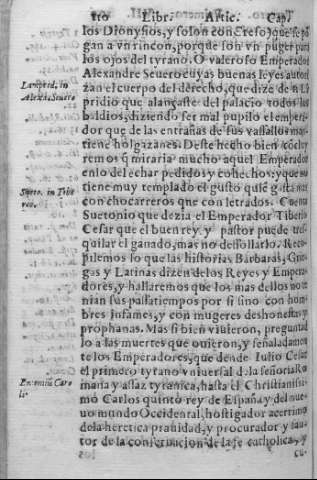 110 Libr. Artic. Cap.
los Dionysios, y solon con Creso) que se põ
gan a vn rincon, porque son vn puger para
los ojos del tyrano. O valeroso Emperador
Lamprid. in
Alexãd. Seuero
Alexandre Seuero cuyas buenas leyes autori
zan el cuerpo del derecho, que dize de ti Lã
pridio que alançaste del palacio todos los
baldios, diziendo ser mal pupilo el empera
dor que de las entrañas de sus vassallos man
tiene holgazanes. Deste hecho bien coleg
remos q̃ miraria mucho aquel Emperador
en lo del echar pedidos y cohechos: y que no
Sueto. in Tibe
reo.
tiene muy templado el gusto quiẽ gusta mas
con chocarreros que con letrados. Cuenta
Suetonio que dezia el Emperador Tiberio
Cesar que el buen rey y pastor puede tres-
quilar el ganado, mas no dessollarlo. Reco
pilemos lo que las historias Barbaras, Grie
gas y Latinas dizen de los Reyes y Empera
dores, y hallaremos que los mas dellos no te
nian sus passatiempos por si sino con hom
bres infames, y con mugeres deshonestas y
prophanas. Mas si bien viuieron, preguntad
lo a las muertes que ouieron, y señaladamẽ
te los Emperadores, que dende Iulio Cesar
el primero tyrano vniuersal d̃ la señoria Ro
mana y assaz tyranica, hasta el Christianissi
mo Carlos quinto rey de España y del nue
uo mundo Occidental, hostigador acerrimo
dela heretica prauidad, y procurador y au-
tor de la conseruacion de la fe catholica, y
cu-